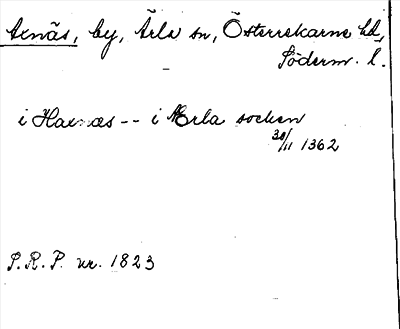 Axnäs, by, Ärla sn, Österrekarne hd,
Söderm. l.
i Haxnæs -- i Ærla socken
30/11 1362
S.R.P. nr. 1823